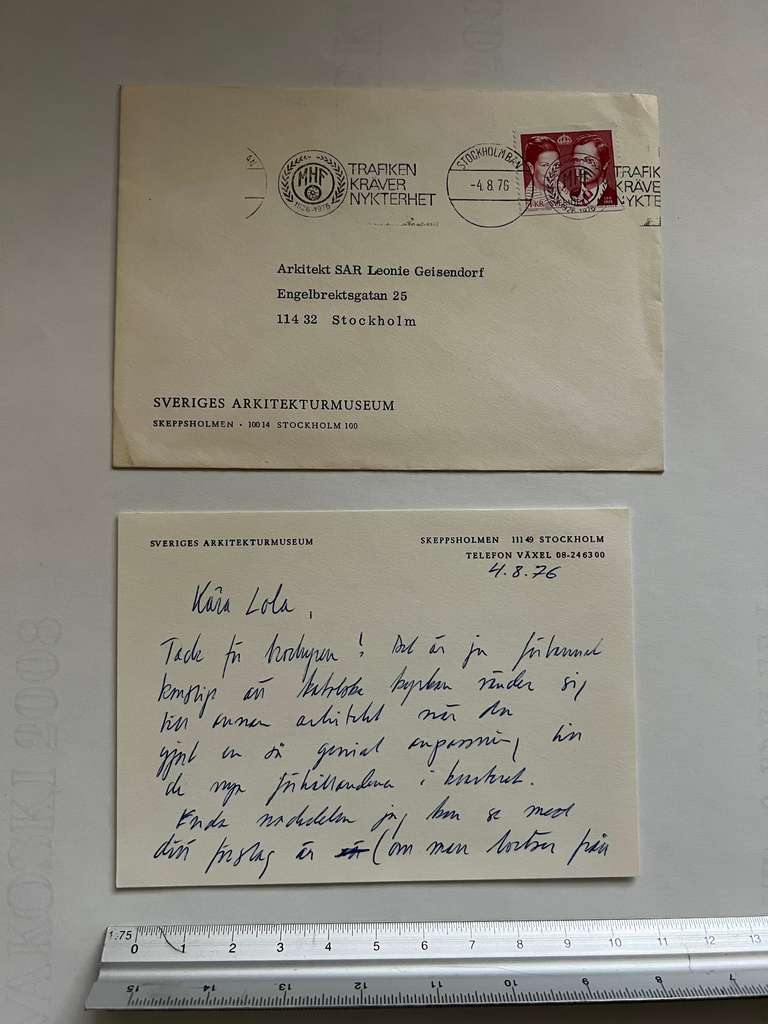 MHF
1926-1976
TRAFIKEN
KRÄVER
NYKTERHET
STOCKHOLM BAN
-4.8.76
MHF
1926-1976
TRAFIK
KRÄVE
NYKTE
1 KR SVERIGE
Arkitekt SAR Leonie Geisendorf
Engelbrektsgatan 25
114 32 Stockholm
SVERIGES ARKITEKTURMUSEUM
SKEPPSHOLMEN · 100 14 STOCKHOLM 100
SVERIGES ARKITEKTURMUSEUM
SKEPPSHOLMEN 111 49 STOCKHOLM
TELEFON VÄXEL 08-24 63 00
4.8.76
Kära Lola,
Tack för broschyren! Det är ju förbannat
konstigt att katolska kyrkan vänder sig
till annan arkitekt när du
gjort en så genial anpassning till
de nya förhållandena i kvarteret.
Enda nackdelen jag kan se med
ditt förslag är (om man bortser från
1:75
0 1 2 3 4 5 6 7 8 9 10 11 12 13
15 14 13 12 11 10 9 8 7